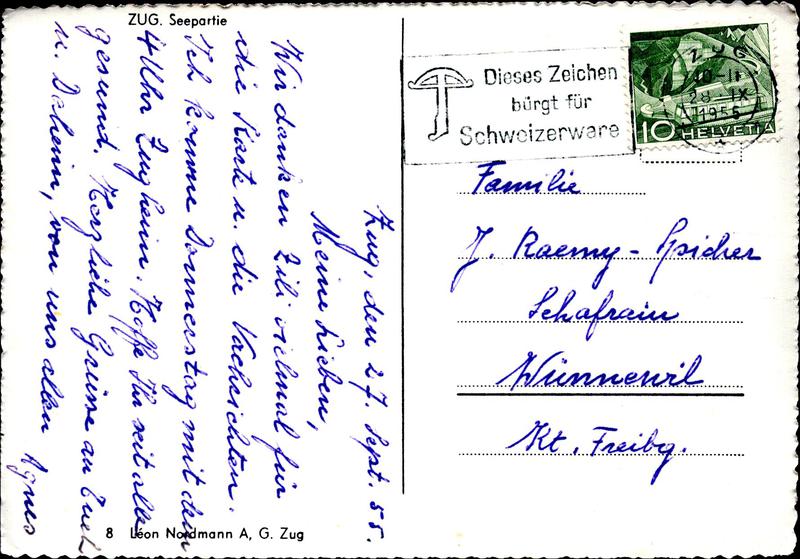 ZUG. Seepartie
Zug, den 27. Sept. 55.
Meine Lieben,
Wir danken Zili vielmal für
die Karte u. die Nachrichten.
Ich komme Donnerstag mit dem
4 Uhr Zug heim. Hoffe Ihr seit alle
gesund. Herzliche Grüsse an Euch
u. Daheim, von uns allen
Agnes
8 Léon Nordmann A, G. Zug
Dieses Zeichen
bürgt für
Schweizerware
ZUG
10-11
28. IX
1955
10 HELVETIA
Familie
J. Raemy-Spicher
Schafrain
Wünnewil
Kt. Freibg.